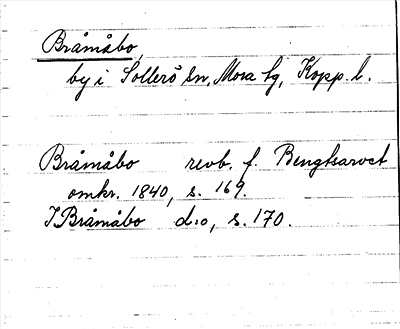 Bråmåbo,
by i Sollerö sn, Mora tg, Kopp. l.
Bråmåbo revb. f. Bengtsarvet
omkr. 1840, s. 169.
I Bråmåbo d:o, s. 170.